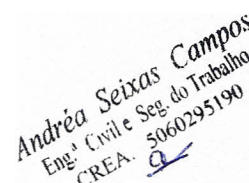 Andréa Seixas Campos
Eng.ª Civil e Seg. do Trabalho
CREA. 5060295190